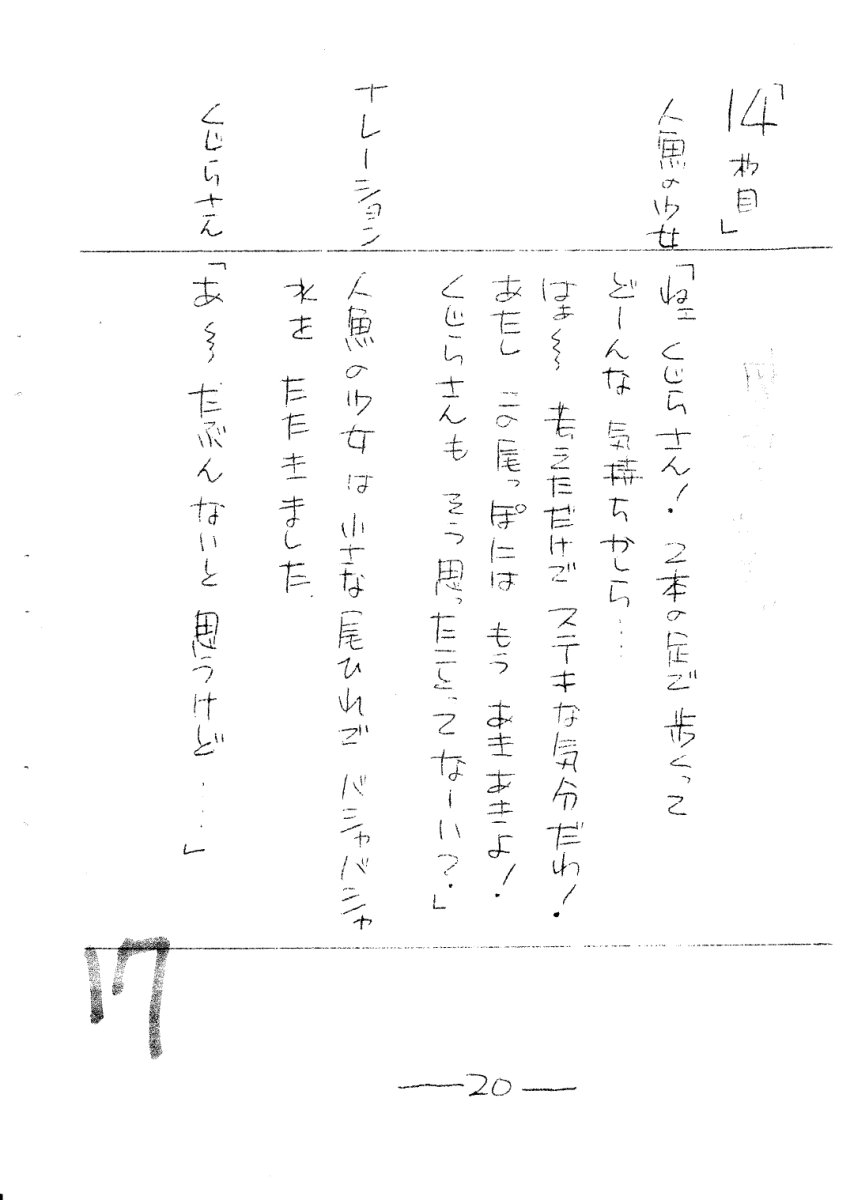 「14枚目」
人魚の少女
「ねェ くじらさん! 2本の足で 歩くって
どーんな 気持ちかしら….
はぁ〜〜 考えただけで ステキな気分だわ!
あたし この尾っぽには もう あきあきよ!
くじらさんも そう思ったことって なーい?」
ナレーション
人魚の少女は 小さな尾ひれで バシャバシャ
水を たたきました.
くじらさん
「あ〜〜 たぶんないと 思うけど….」
17
—20—